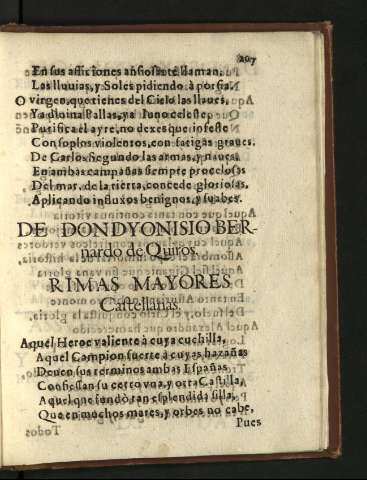 207
En sus aflicciones ansiosas te llaman,
Las lluuias, y Soles pidiendo à porfia.
O virgen, que tienes del Cielo las llaues,
Ya diuina Pallas, ya Iuno celeste,
Purifica el ayre, no dexes que infeste
Con soplos violentos, con fatigas graues.
De Carlos Segundo las armas, y naues,
En ambas campañas siempre procelosas
Del mar, de la tierra, concede gloriosas,
Aplicando influxos benignos, y suabes.
DE DON DYONISIO BER-
nardo de Quiros.
RIMAS MAYORES
Castellanas.
Aquel Heroe valiente à cuya cuchilla,
Aquel Campion fuerte à cuyas hazañas
Deuen sus terminos ambas Españas
Confiessan su cetro vna, y otra Castilla,
Aquel que fundò tan esplendida silla,
Que en muchos mares, y orbes no cabe,
Pues